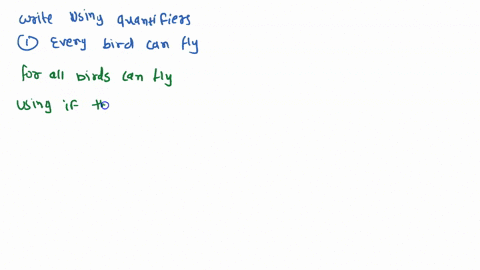 write using quantifiers
① Every bird can fly
for all birds can fly
using if th